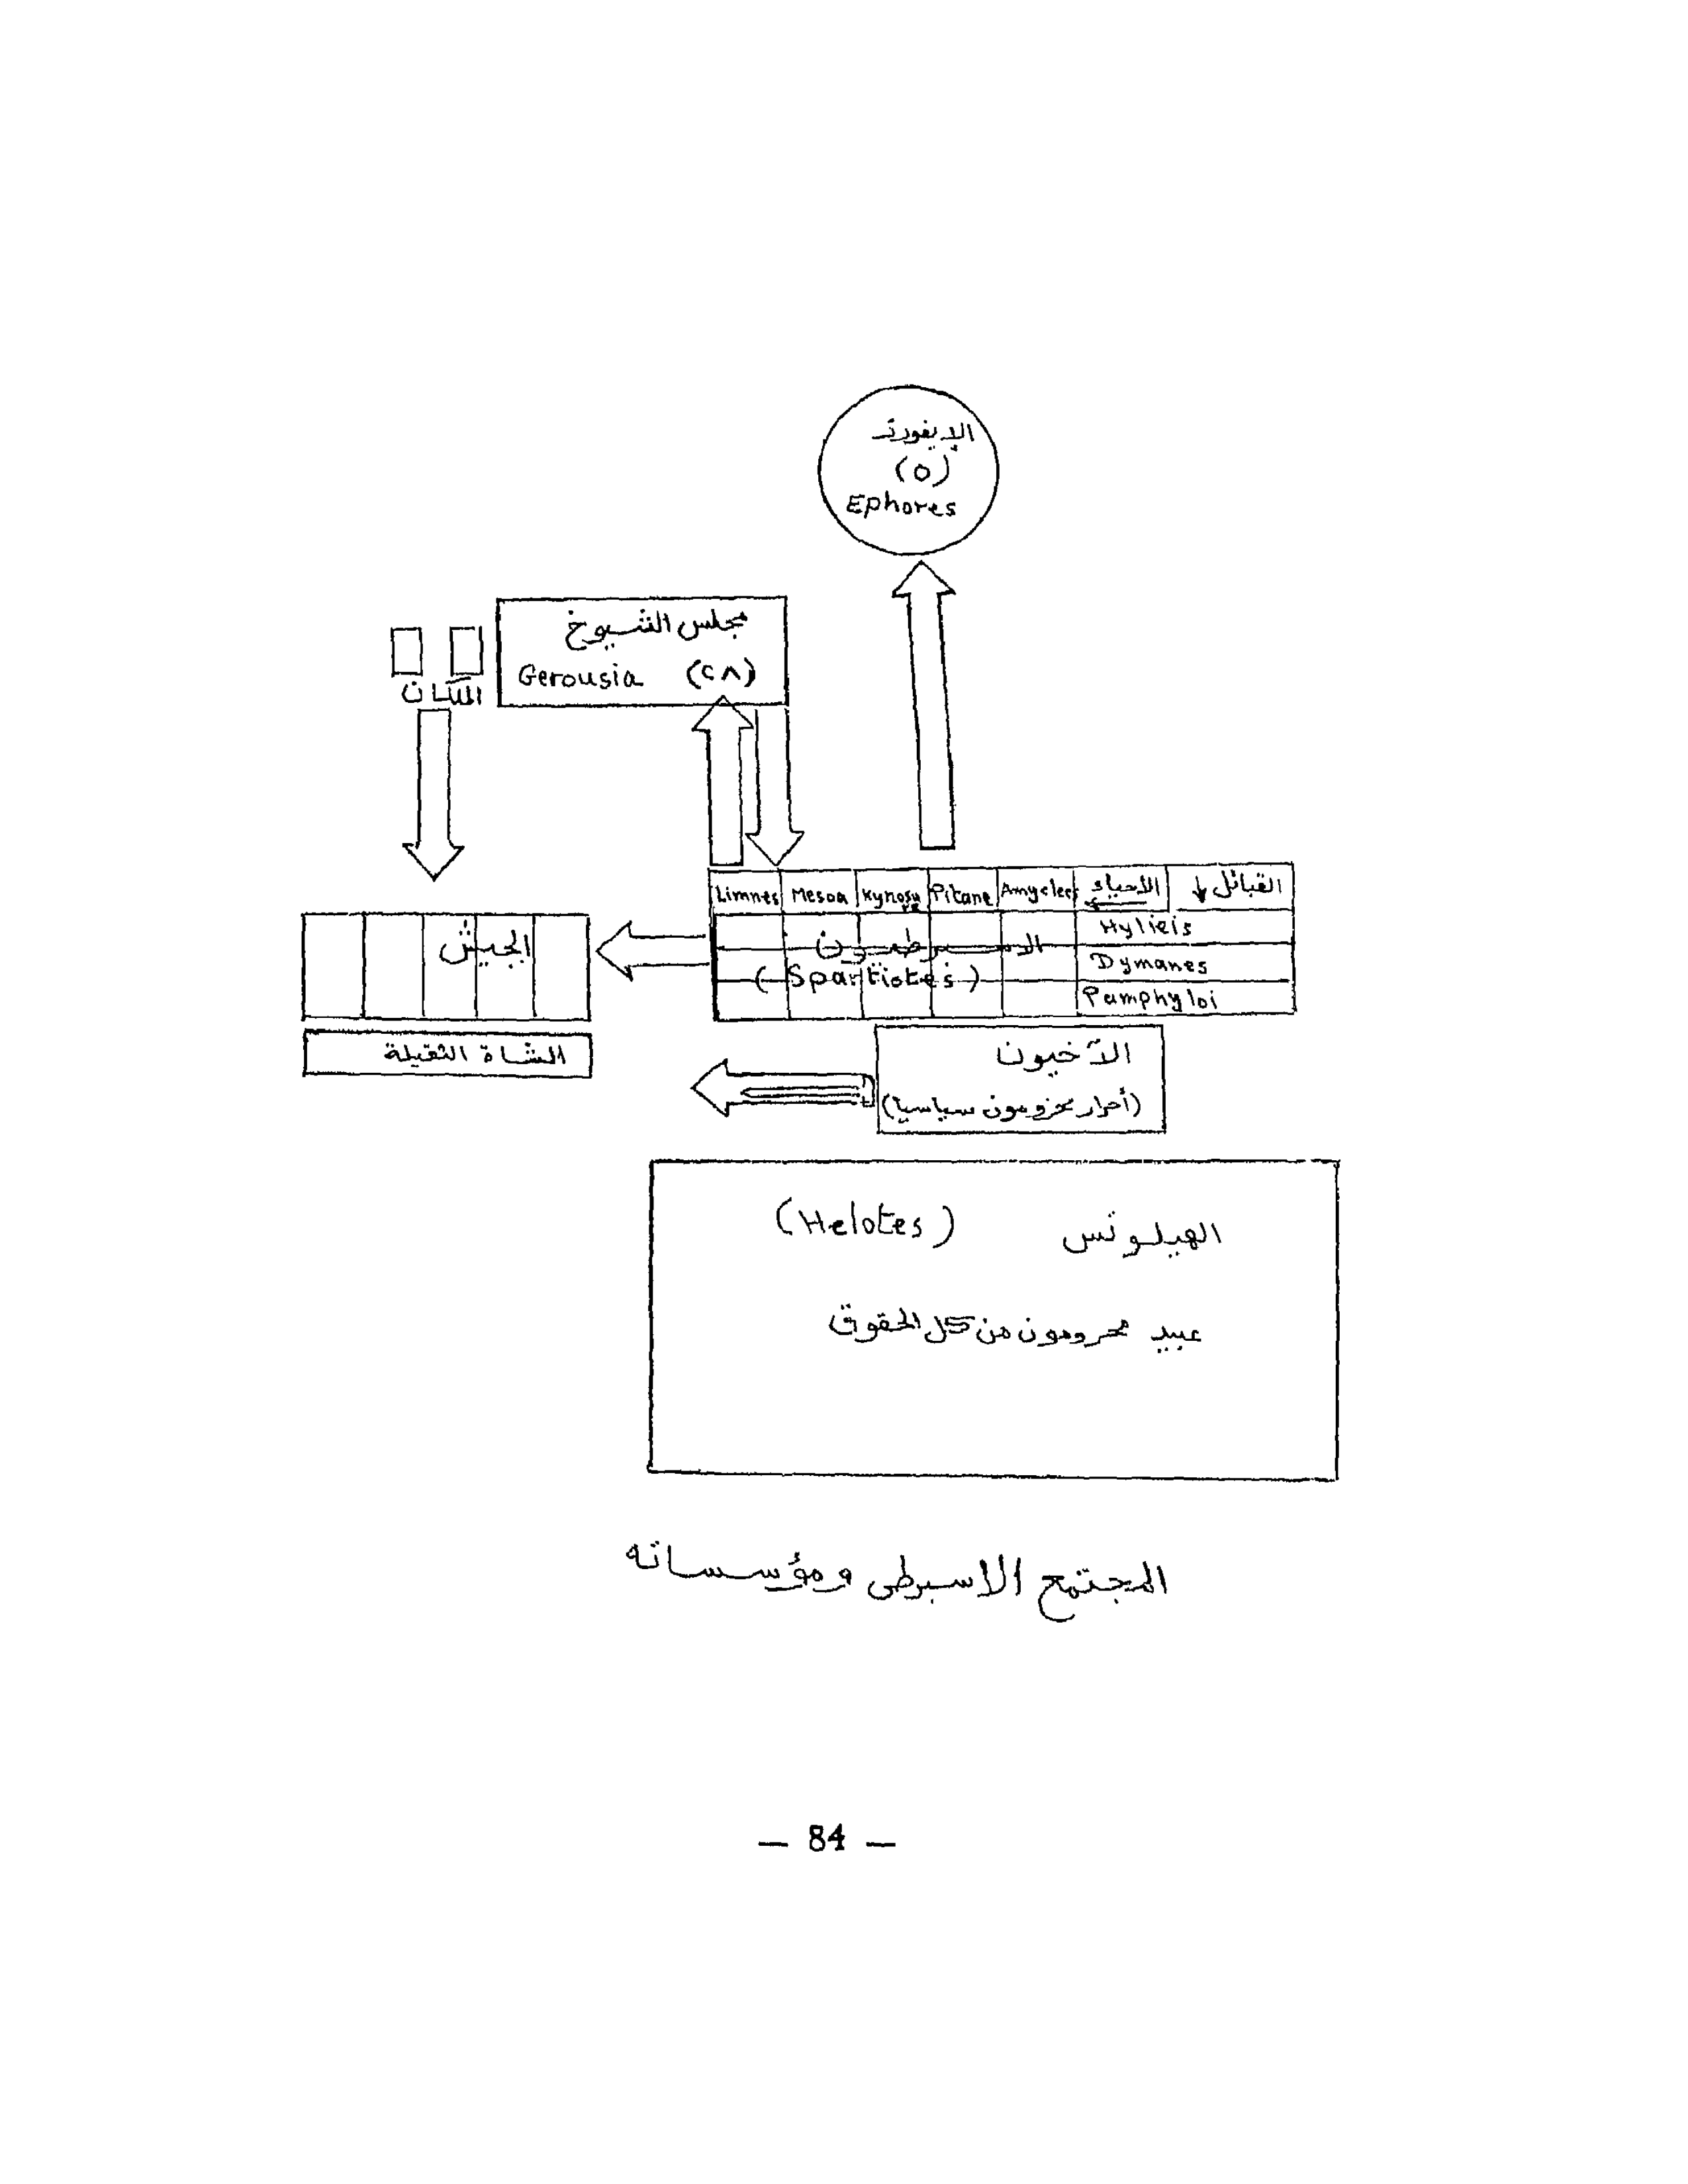 الإيفورت
(٥)
Ephores
مجلس الشيوخ
Gerousia (٢٨)
الملكان
القبائل الأحياء Amyclees Pitane Kynosu Mesoa Limnes
re
Hylieis
Dymanes
Pamphyloi
الاسبرطيون
(Spartiotes)
الجيش
المشاة الثقيلة
الآخيون
(أحرار محرومون سياسيا)
الهيلوتس (Helotes)
عبيد محرومون من كل الحقوق
المجتمع الاسبرطى ومؤسساته
— 84 —